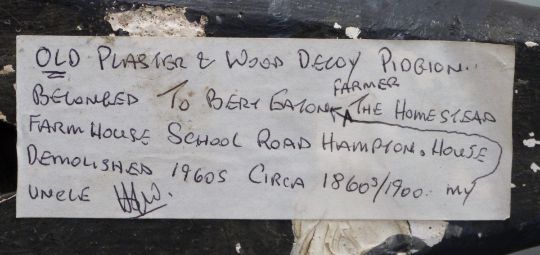 OLD PLASTER & WOOD DECOY PIDGION..
FARMER
BELONGED TO BERT EATON THE HOMESTEAD
FARM HOUSE SCHOOL ROAD HAMPTON. HOUSE
DEMOLISHED 1960S CIRCA 1860S/1900. MY
UNCLE